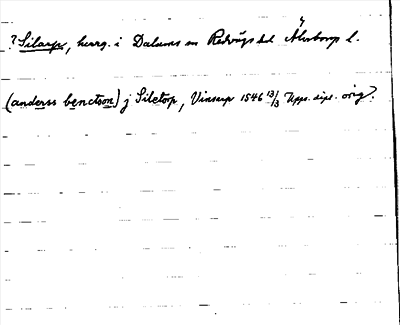 ? Silarp, herrg. i Dalums sn Redvägs hd Älvsborgs l.
(anderss benctson) j Siletorp, Vinsarp 1546 13/3 Upps. dipl. orig?